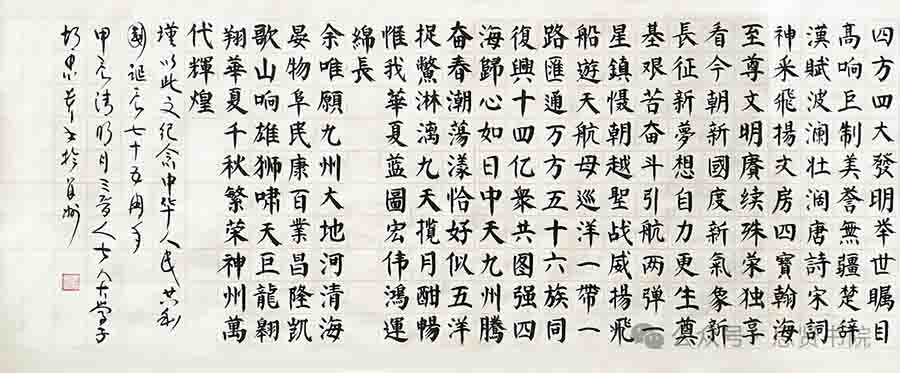 四方四大发明举世瞩目
高响巨制美誉無疆楚辞
漢賦波澜壮阔唐詩宋詞
神采飛揚文房四寶翰海
至尊文明赓续殊荣独享
看今朝新國度新氣象新
長征新夢想自力更生奠
基艰苦奋斗引航两弹一
星鎮慑朝越聖战威揚飛
船遊天航母巡洋一帶一
路匯通万方五十六族同
復興十四亿衆共图强四
海歸心如日中天九州騰
奋春潮蕩漾恰好似五洋
捉鱉淋漓九天攬月酣暢
惟我華夏蓝圖宏伟鴻運
綿長
余唯願九州大地河清海
晏物阜民康百業昌隆凯
歌山响雄狮啸天巨龍翱
翔華夏千秋繁荣神州萬
代輝煌
谨以此文纪念中华人民共和
國诞辰七十五周年
甲辰清明月
公众号·思贤书院